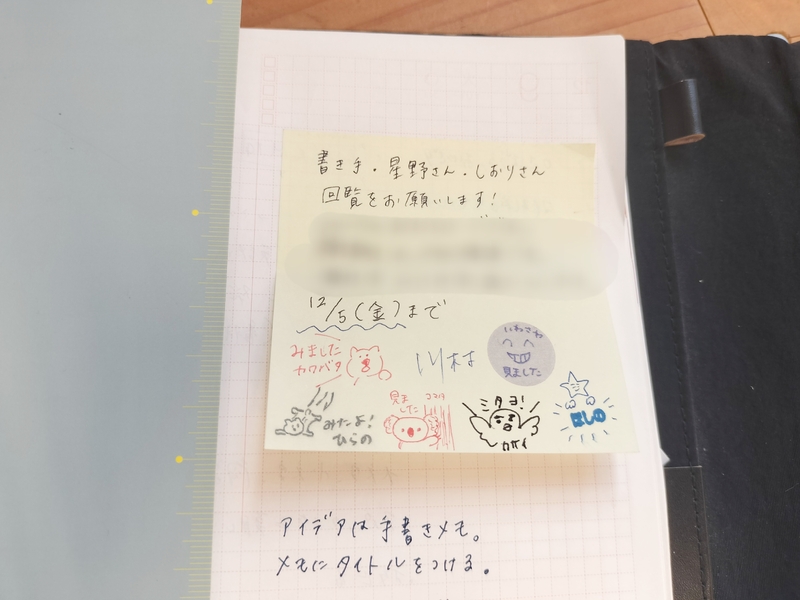 書き手・星野さん・しおりさん
回覧をお願いします！
12/5(金)まで
みました
カワバタ
川村
いわさわ
見ました
みたよ！
ひらの
見ま
した
ミタヨ！
カサイ
ほしの
アイデアは手書きメモ。
メモにタイトルをつける。